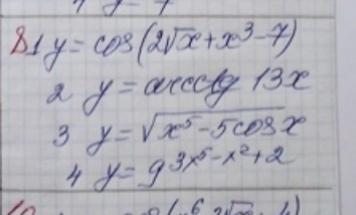 81 y = cos(2√x + x³ - 7)
2 y = arcctg 13x
3 y = √(x⁵ - 5cosx)
4 y = 9^(3x⁵ - x² + 2)